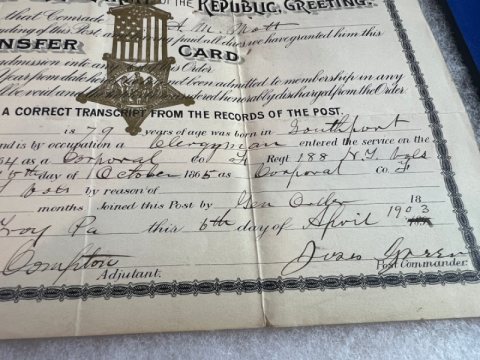 OF THE REPUBLIC, GREETING.
that Comrade A. M. Mott
standing of this Post and having paid all dues we have granted him this
TRANSFER CARD
admission into a Post of this Order
Year from date hereof not been admitted to membership in any
be void and honorably discharged from the Order.
A CORRECT TRANSCRIPT FROM THE RECORDS OF THE POST.
is 79 years of age was born in Southport
and is by occupation a Clergyman entered the service on the
as a Corporal Co. F Regt 188 N.Y. Vols
day of October 1865 as Corporal Co. F
by reason of
months Joined this Post by Gen Order 18
Troy Pa this 6th day of April 1903
Compton Adjutant.
Post Commander.